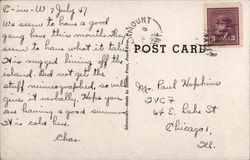 C-in-W 7 July 47
We seem to have a good
gang here this month. They
seem to have what it takes.
It is rugged living off the
island. But not get the
stuff mimeographed, so will
give it verbally. Hope you
are having a good summer.
It is cold here.
Chas.
POST CARD
MOUNT
3 3
Mr. Paul Hopkins
IVCF
64 E. Lake St
Chicago 1,
Ill.